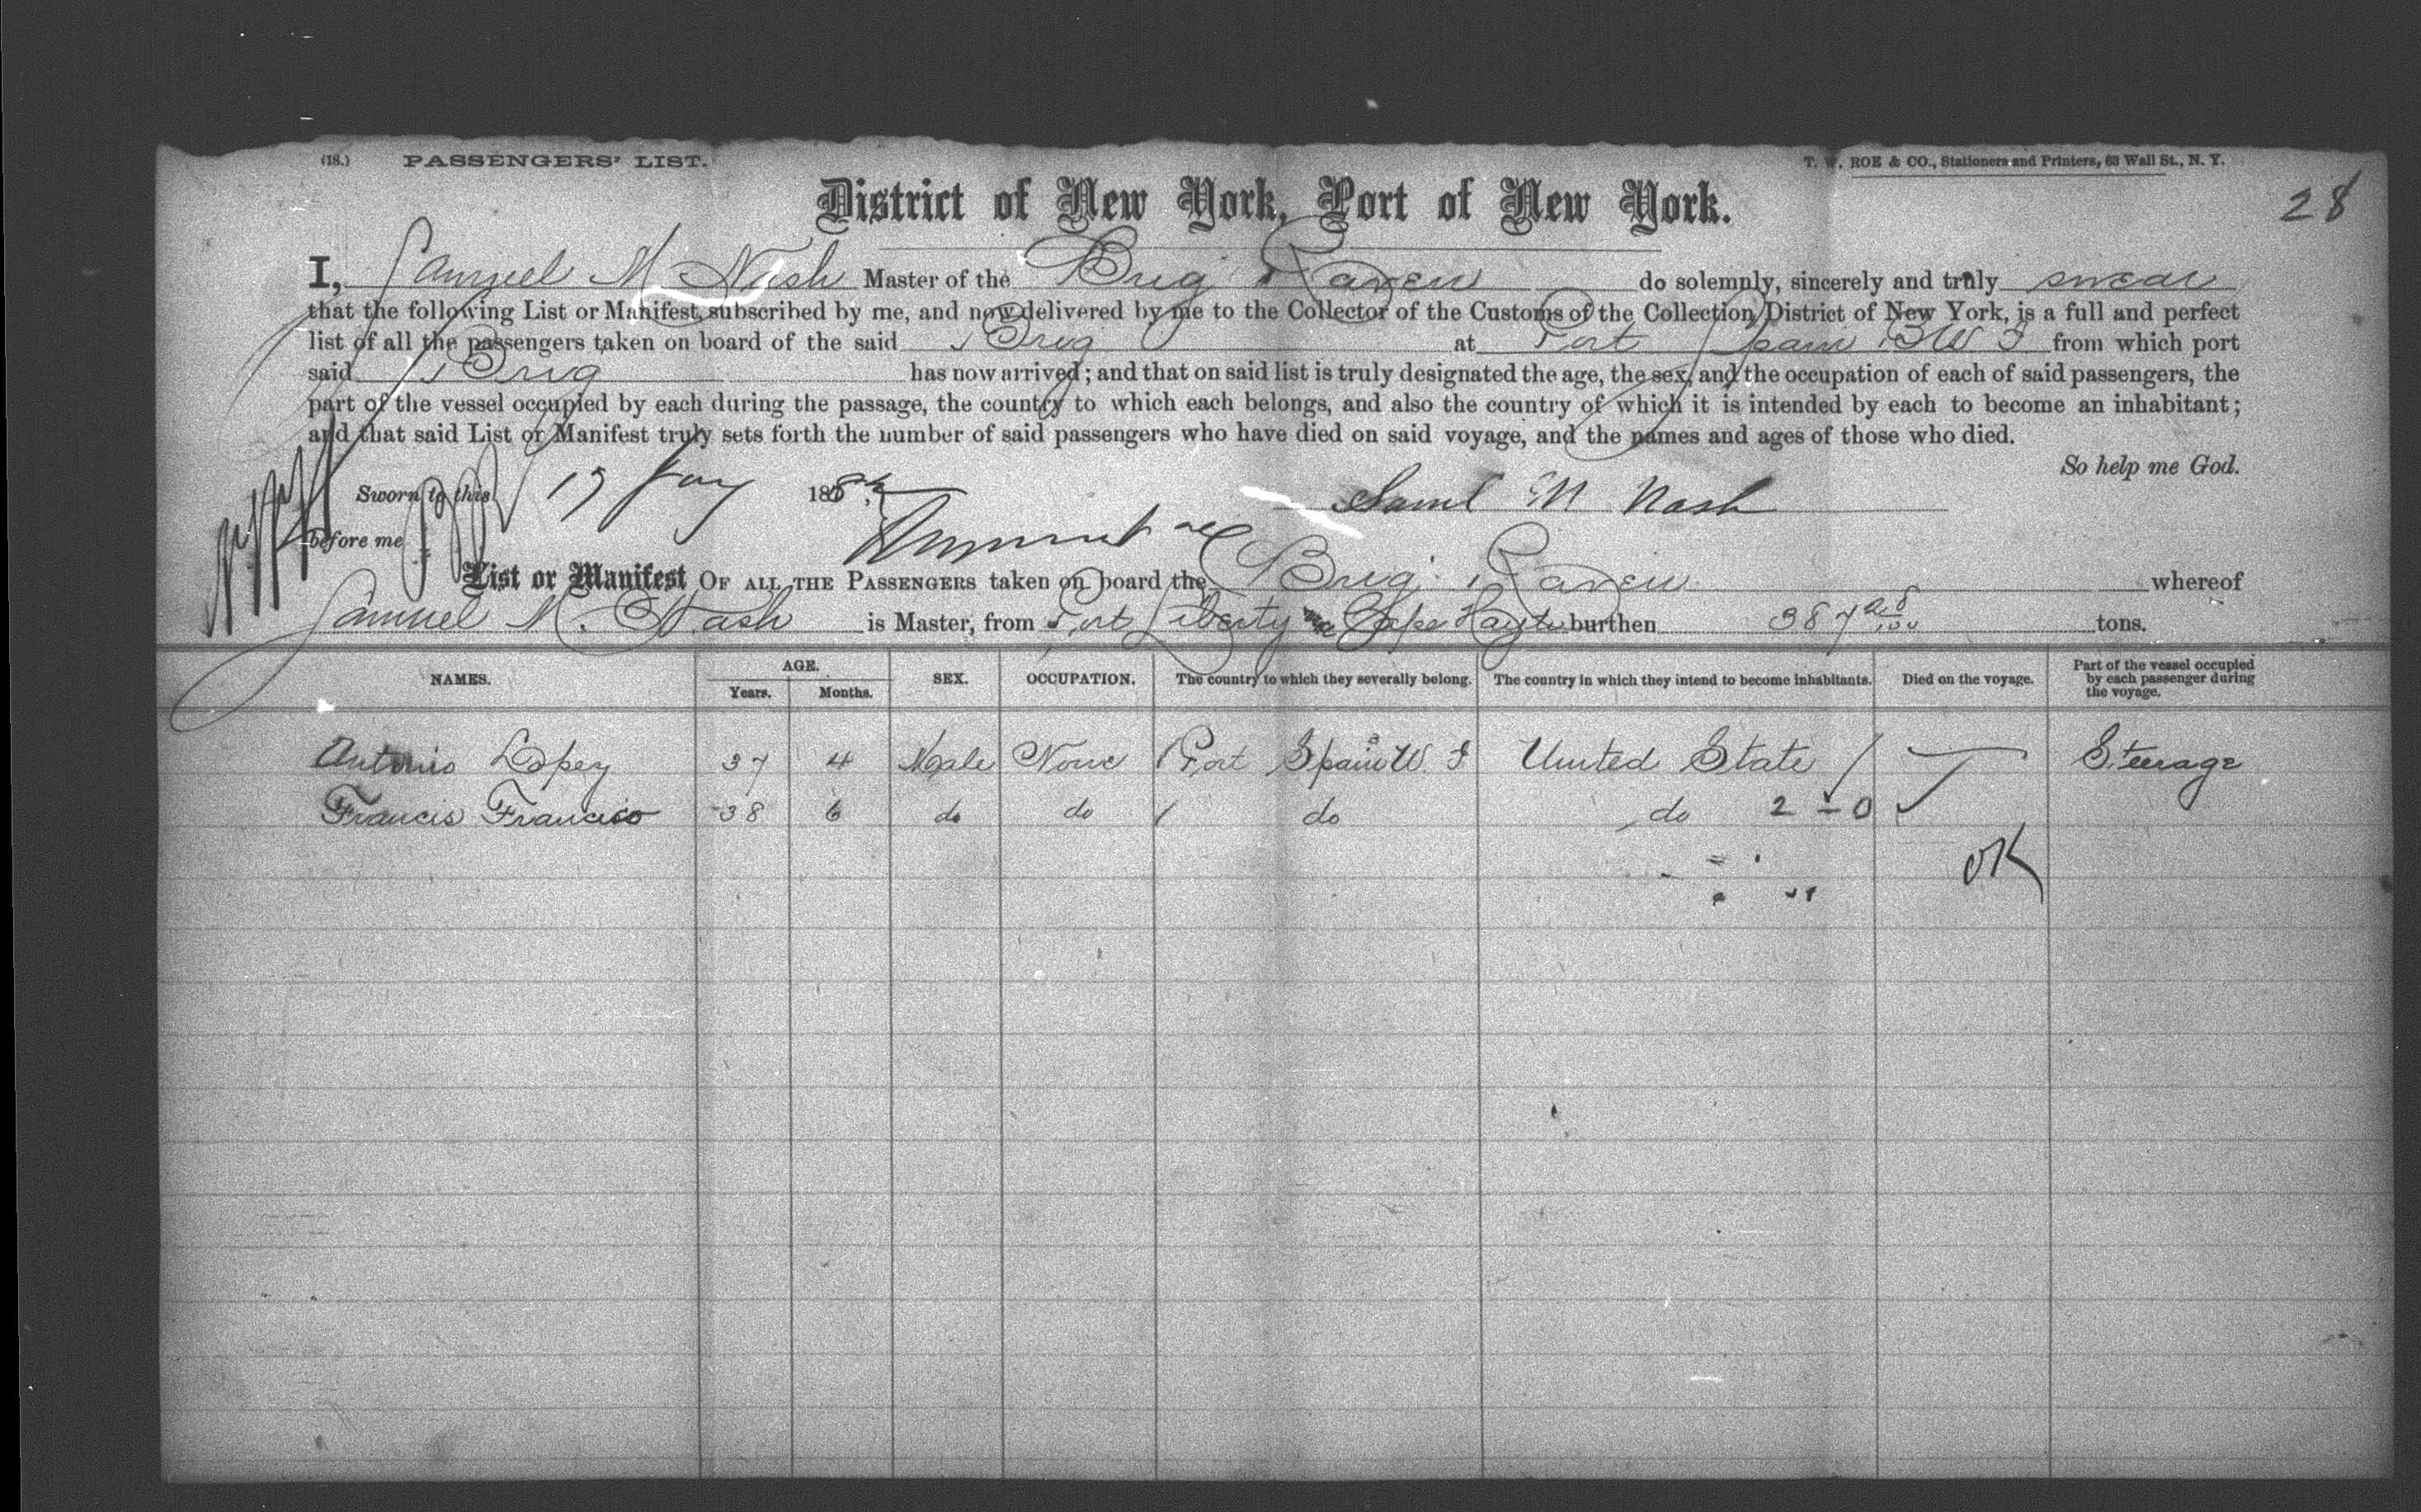 (18.) PASSENGERS' LIST. T. W. ROE & CO., Stationers and Printers, 63 Wall St., N. Y.
28
District of New York, Port of New York.
I, Samuel M Nash Master of the Brig Raven do solemnly, sincerely and truly swear
that the following List or Manifest, subscribed by me, and now delivered by me to the Collector of the Customs of the Collection District of New York, is a full and perfect
list of all the passengers taken on board of the said Brig at Port Spain B W I from which port
said Brig has now arrived; and that on said list is truly designated the age, the sex, and the occupation of each of said passengers, the
part of the vessel occupied by each during the passage, the country to which each belongs, and also the country of which it is intended by each to become an inhabitant;
and that said List or Manifest truly sets forth the number of said passengers who have died on said voyage, and the names and ages of those who died.
So help me God.
Sworn to this 19 Jany 188 Saml M Nash
before me
List or Manifest OF ALL THE PASSENGERS taken on board the Brig Raven whereof
Samuel M. Nash is Master, from Port Liberty Cape Hayti burthen 387 tons.
NAMES. AGE. Years. Months. SEX. OCCUPATION. The country to which they severally belong. The country in which they intend to become inhabitants. Died on the voyage. Part of the vessel occupied by each passenger during the voyage.
Antonio Lopez 37 4 Male None Port Spain W. I United State Steerage
Francis Francisco 38 6 do do do do 2 - 0
OK